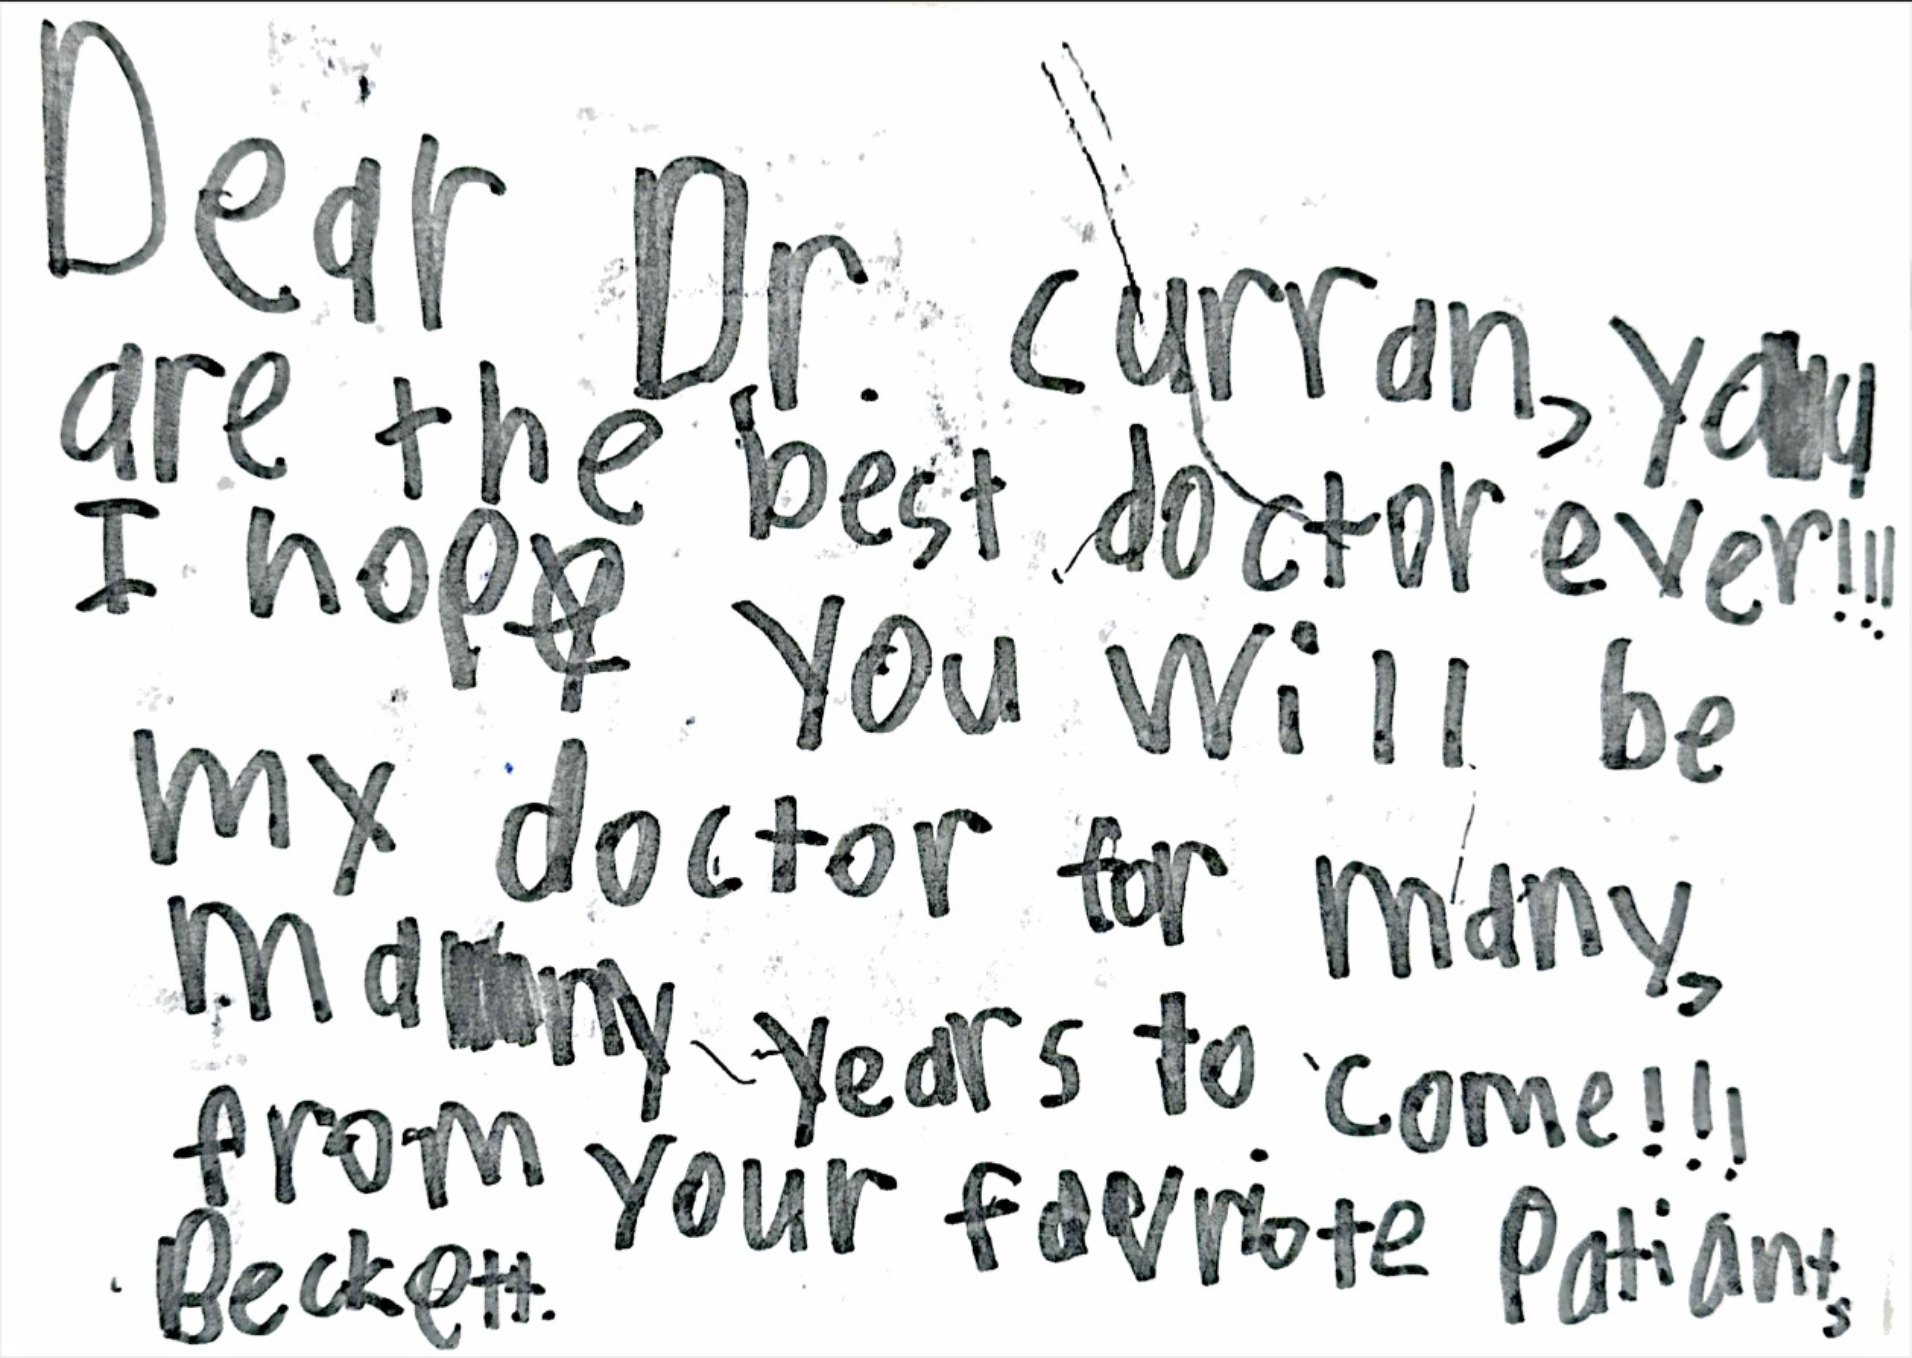 Dear Dr. Curran, you
are the best doctor ever!!!
I hope you will be
my doctor for many,
many years to come!!!
from your favriote Patiant,
Beckett.